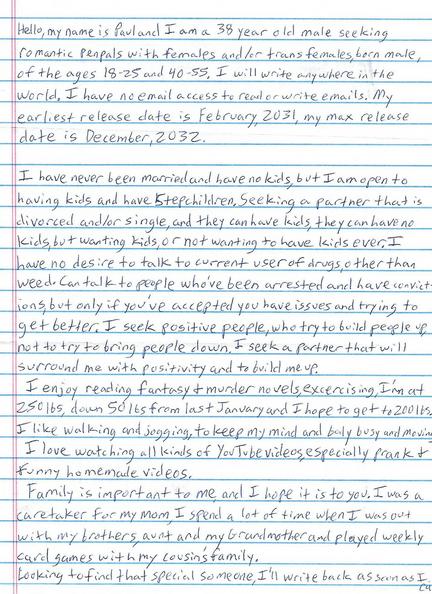 Hello, my name is Paul and I am a 38 year old male seeking
romantic penpals with females and/or trans females, born male,
of the ages 18-25 and 40-55. I will write anywhere in the
world. I have no email access to read or write emails. My
earliest release date is February, 2031, my max release
date is December, 2032.
I have never been married and have no kids, but I am open to
having kids and have stepchildren. Seeking a partner that is
divorced and/or single, and they can have kids, they can have no
kids, but wanting kids, or not wanting to have kids ever. I
have no desire to talk to current user of drugs, other than
weed. Can talk to people who've been arrested and have convict-
ions, but only if you've accepted you have issues and trying to
get better. I seek positive people, who try to build people up,
not to try to bring people down. I seek a partner that will
surround me with positivity and to build me up.
I enjoy reading fantasy & murder novels, excercising, I'm at
250 lbs, down 50 lbs from last January and I hope to get to 200 lbs.
I like walking and jogging, to keep my mind and body busy and moving
I love watching all kinds of YouTube videos, especially prank &
funny homemade videos.
Family is important to me, and I hope it is to you. I was a
caretaker for my mom, I spend a lot of time when I was out
with my brothers, aunt and my Grandmother and played weekly
card games with my cousin's family.
Looking to find that special someone, I'll write back as soon as I